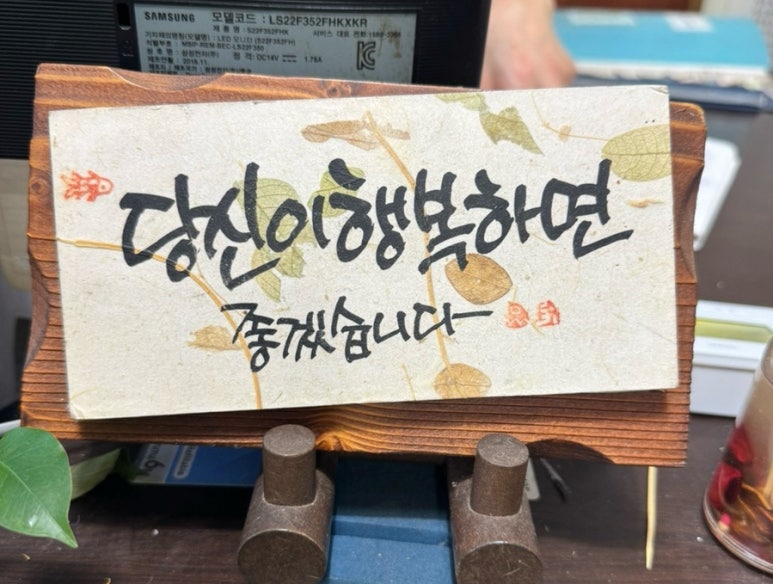 SAMSUNG 모델코드 : LS22F352FHKXKR
제 품 명 : S22F352FHK 서비스 대표 전화:1588-3366
기자재명칭(모델명) : LED 모니터 (S22F352FH)
식별부호 : MSIP-REM-SEC-LS22F350
정 격: DC14V 1.78A
제조년월 : 2018.11
당신이 행복하면
좋겠습니다